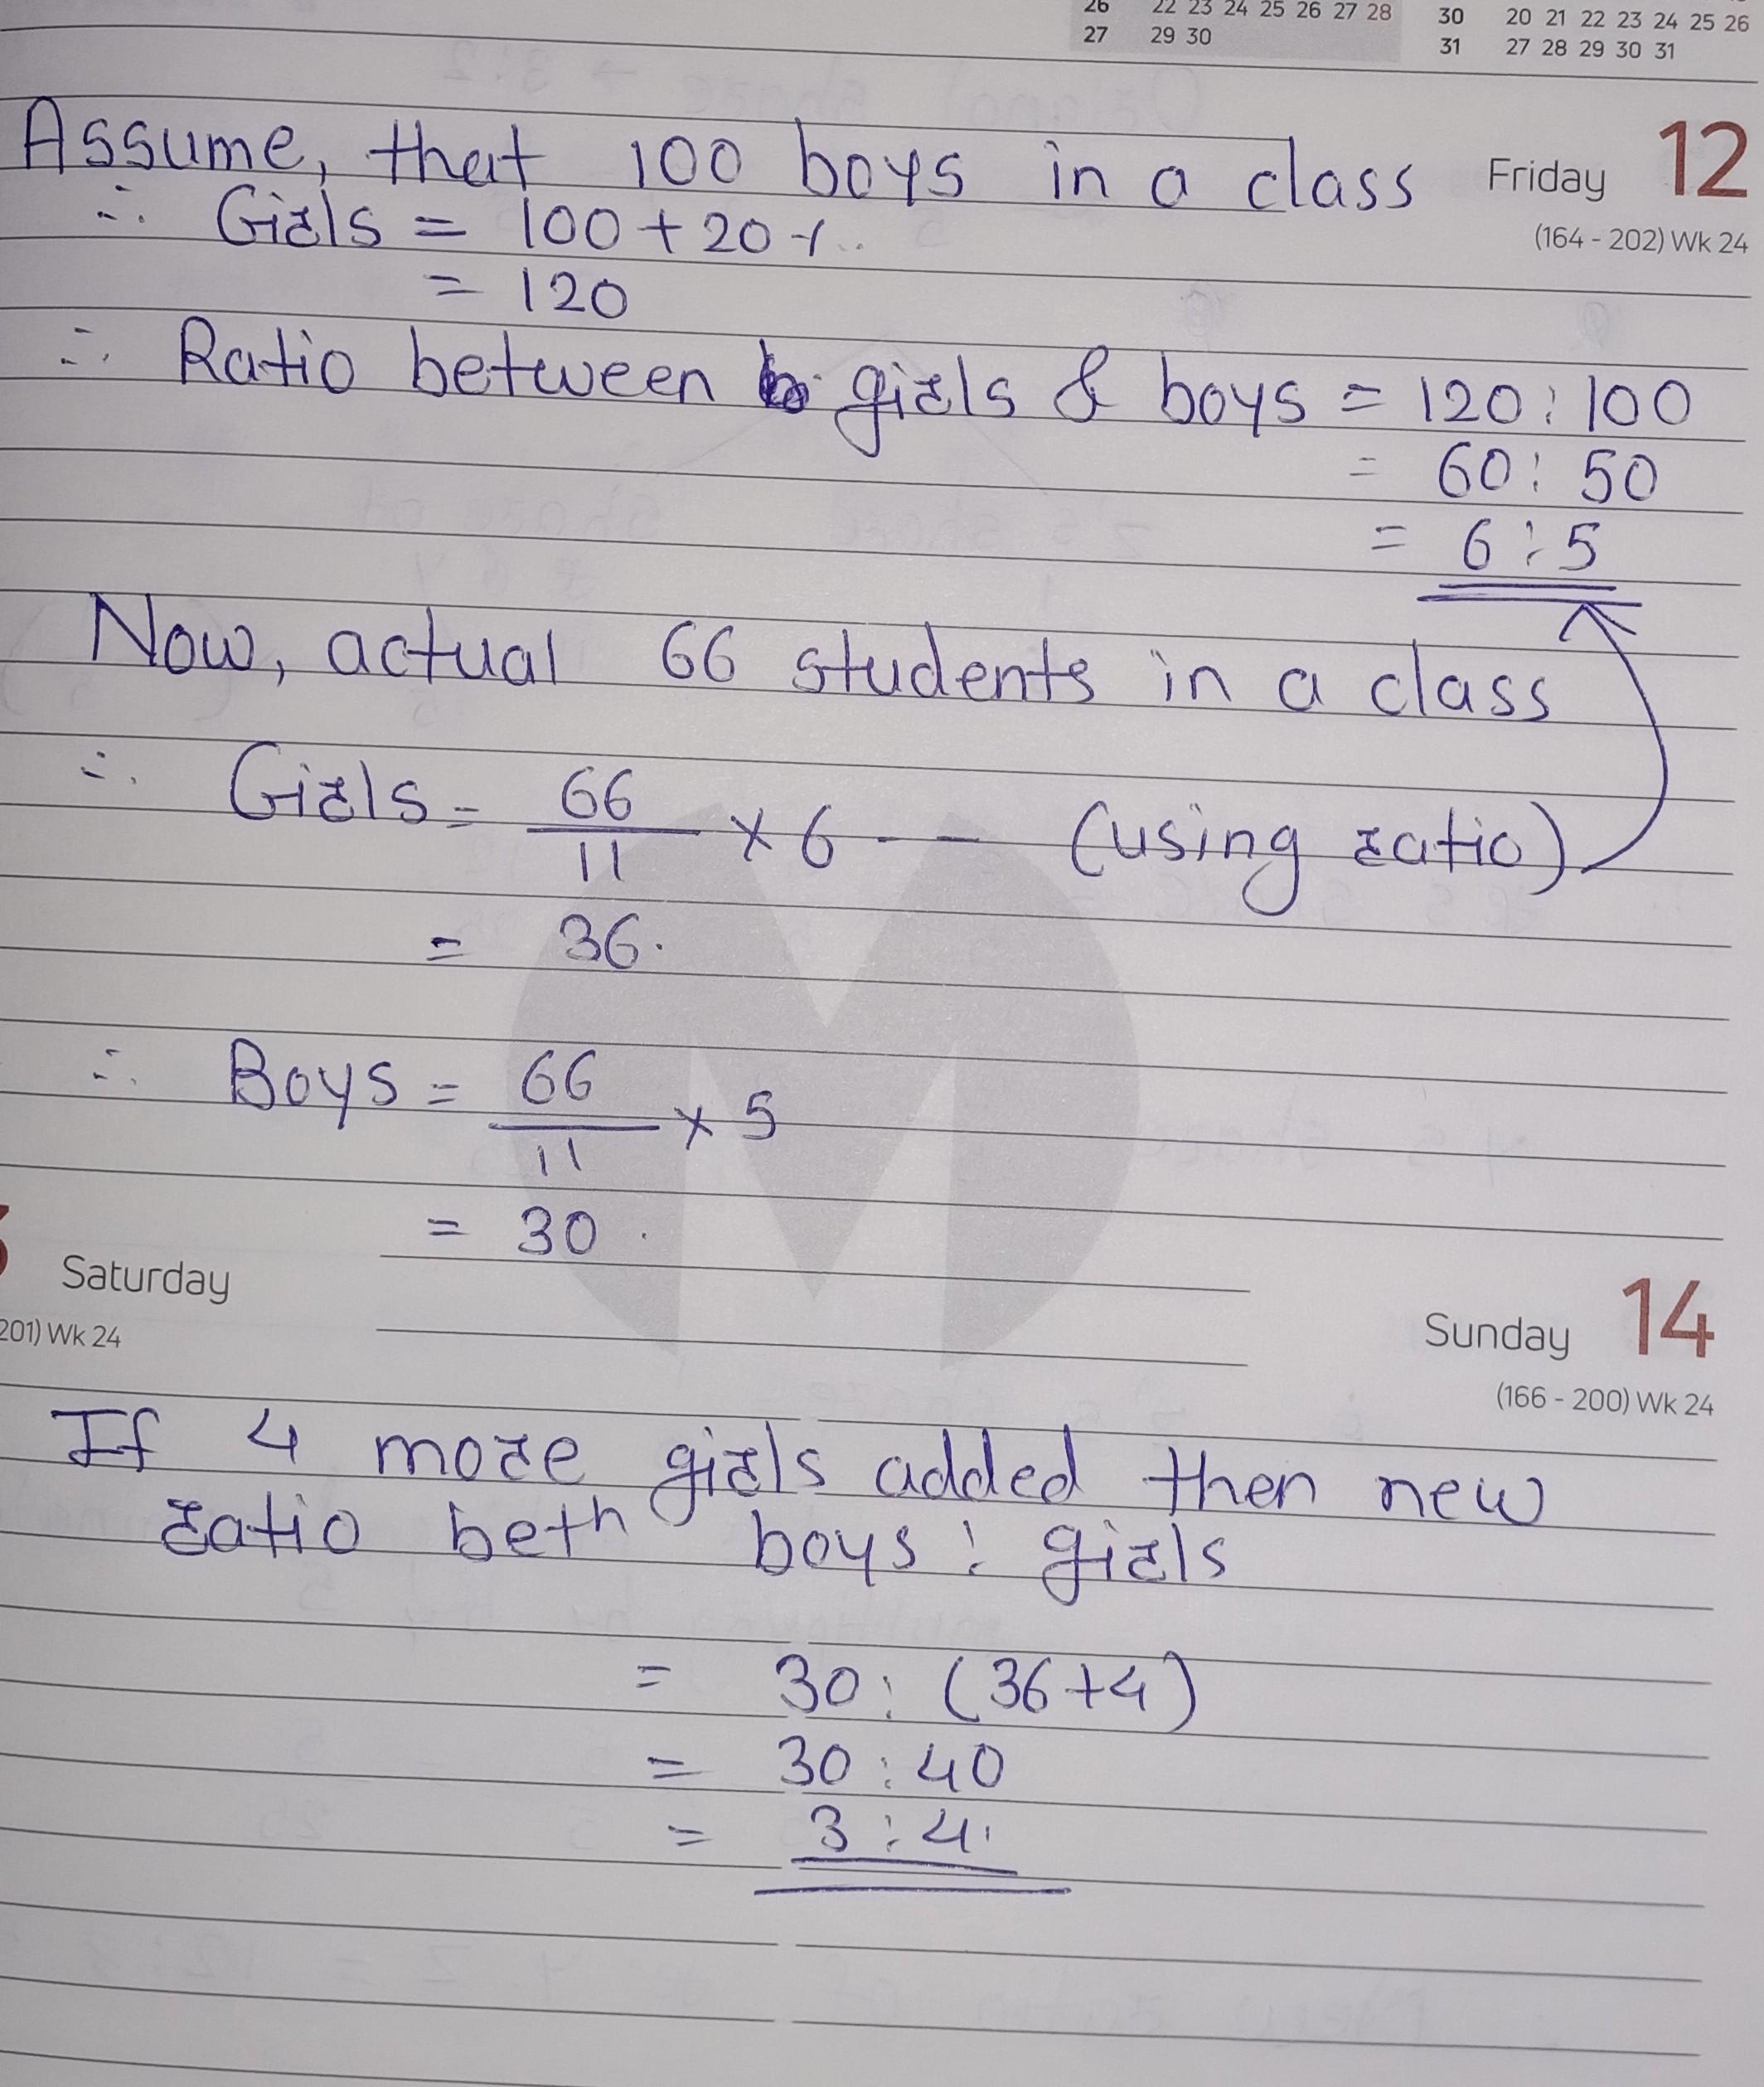 26 22 23 24 25 26 27 28 30 20 21 22 23 24 25 26
27 29 30 31 27 28 29 30 31
Assume, that 100 boys in a class Friday 12
(164 - 202) Wk 24
∴ Girls = 100 + 20%
= 120
∴ Ratio between girls & boys = 120 : 100
= 60 : 50
= 6 : 5
Now, actual 66 students in a class
∴ Girls = 66/11 × 6 -- (using ratio)
= 36.
∴ Boys = 66/11 × 5
= 30.
Saturday
201) Wk 24
Sunday 14
(166 - 200) Wk 24
If 4 more girls added then new
ratio beth boys : girls
= 30 : (36+4)
= 30 : 40
= 3 : 4.